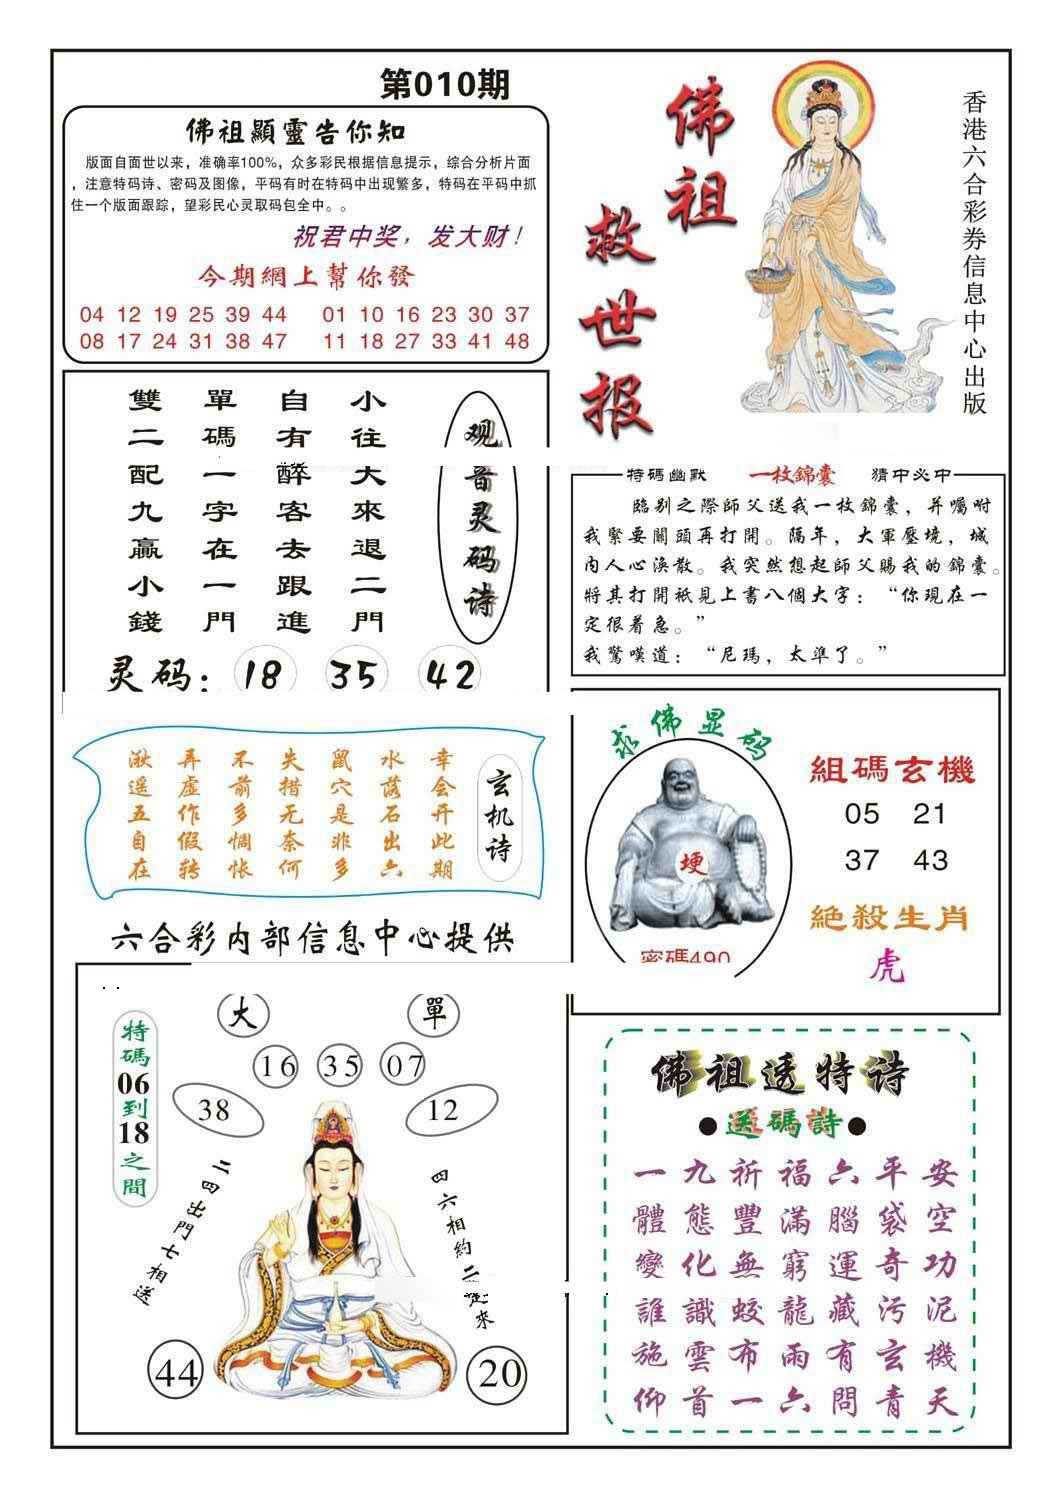 第010期
佛祖顯靈告你知
版面自面世以来，准确率100%，众多彩民根据信息提示，综合分析片面
，注意特码诗、密码及图像，平码有时在特码中出现繁多，特码在平码中抓
住一个版面跟踪，望彩民心灵取码包全中。。
祝君中奖，发大财！
今期網上幫你發
04 12 19 25 39 44 01 10 16 23 30 37
08 17 24 31 38 47 11 18 27 33 41 48
佛祖
救世报
香港六合彩券信息中心出版
观音灵码诗
小往大來退二門
自有醉客去跟進
單碼一字在一門
雙二配九贏小錢
灵码：18 35 42
特碼幽默 一枚錦囊 猜中必中
臨别之際師父送我一枚錦囊，并囑咐
我緊要關頭再打開。隔年，大軍壓境，城
内人心渙散。我突然想起師父賜我的錦囊。
將其打開衹見上書八個大字：“你現在一
定很着急。”
我驚嘆道：“尼瑪，太準了。”
玄机诗
幸会开此期
水落石出六
鼠穴是非多
失措无奈何
不前多惆怅
弄虚作假转
湫遥五自在
求佛显码
埂
密碼490
組碼玄機
05 21
37 43
絕殺生肖
虎
六合彩内部信息中心提供
大 單
16 35 07
38 12
特碼06到18之間
二四出門七相送
四六相約二起來
44 20
佛祖透特诗
●送碼詩●
一九祈福六平安
體態豐滿腦袋空
變化無窮運奇功
誰識蛟龍藏污泥
施雲布雨有玄機
仰首一六問青天